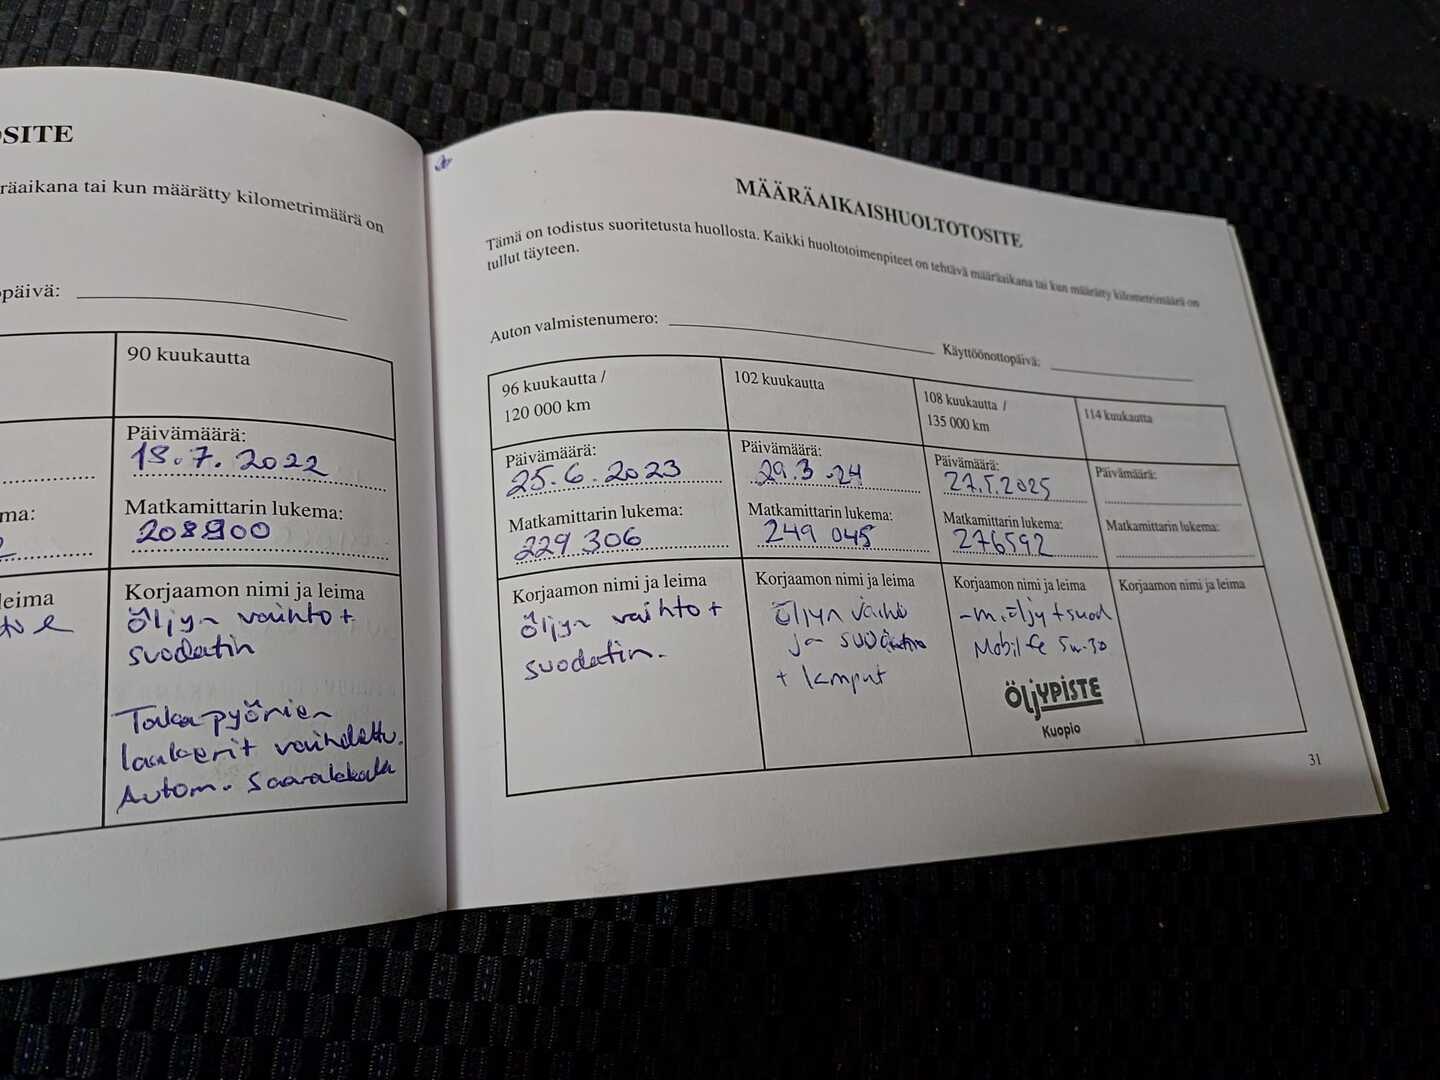 OSITE
räaikana tai kun määrätty kilometrimäärä on
opäivä:
90 kuukautta
Päivämäärä:
18.7.2022
ma:
Matkamittarin lukema:
208900
leima
Korjaamon nimi ja leima
Öljyn vaihto +
suodatin
Takapyörien
laakerit vaihdettu.
Autom. Saarakkala
MÄÄRÄAIKAISHUOLTOTOSITE
Tämä on todistus suoritetusta huollosta. Kaikki huoltotoimenpiteet on tehtävä määräaikana tai kun määrätty kilometrimäärä on
tullut täyteen.
Auton valmistenumero:
Käyttöönottopäivä:
96 kuukautta /
120 000 km
Päivämäärä:
25.6.2023
Matkamittarin lukema:
229 306
Korjaamon nimi ja leima
Öljyn vaihto +
suodatin.
102 kuukautta
Päivämäärä:
29.3.24
Matkamittarin lukema:
249 045
Korjaamon nimi ja leima
Öljyn vaihto
ja suodatin
+
108 kuukautta /
135 000 km
Päivämäärä:
27.5.2025
Matkamittarin lukema:
276592
Korjaamon nimi ja leima
- m.öljy + suod
Mobil fe 5w-30
ÖLJYPISTE
Kuopio
114 kuukautta
Päivämäärä:
Matkamittarin lukema:
Korjaamon nimi ja leima
31